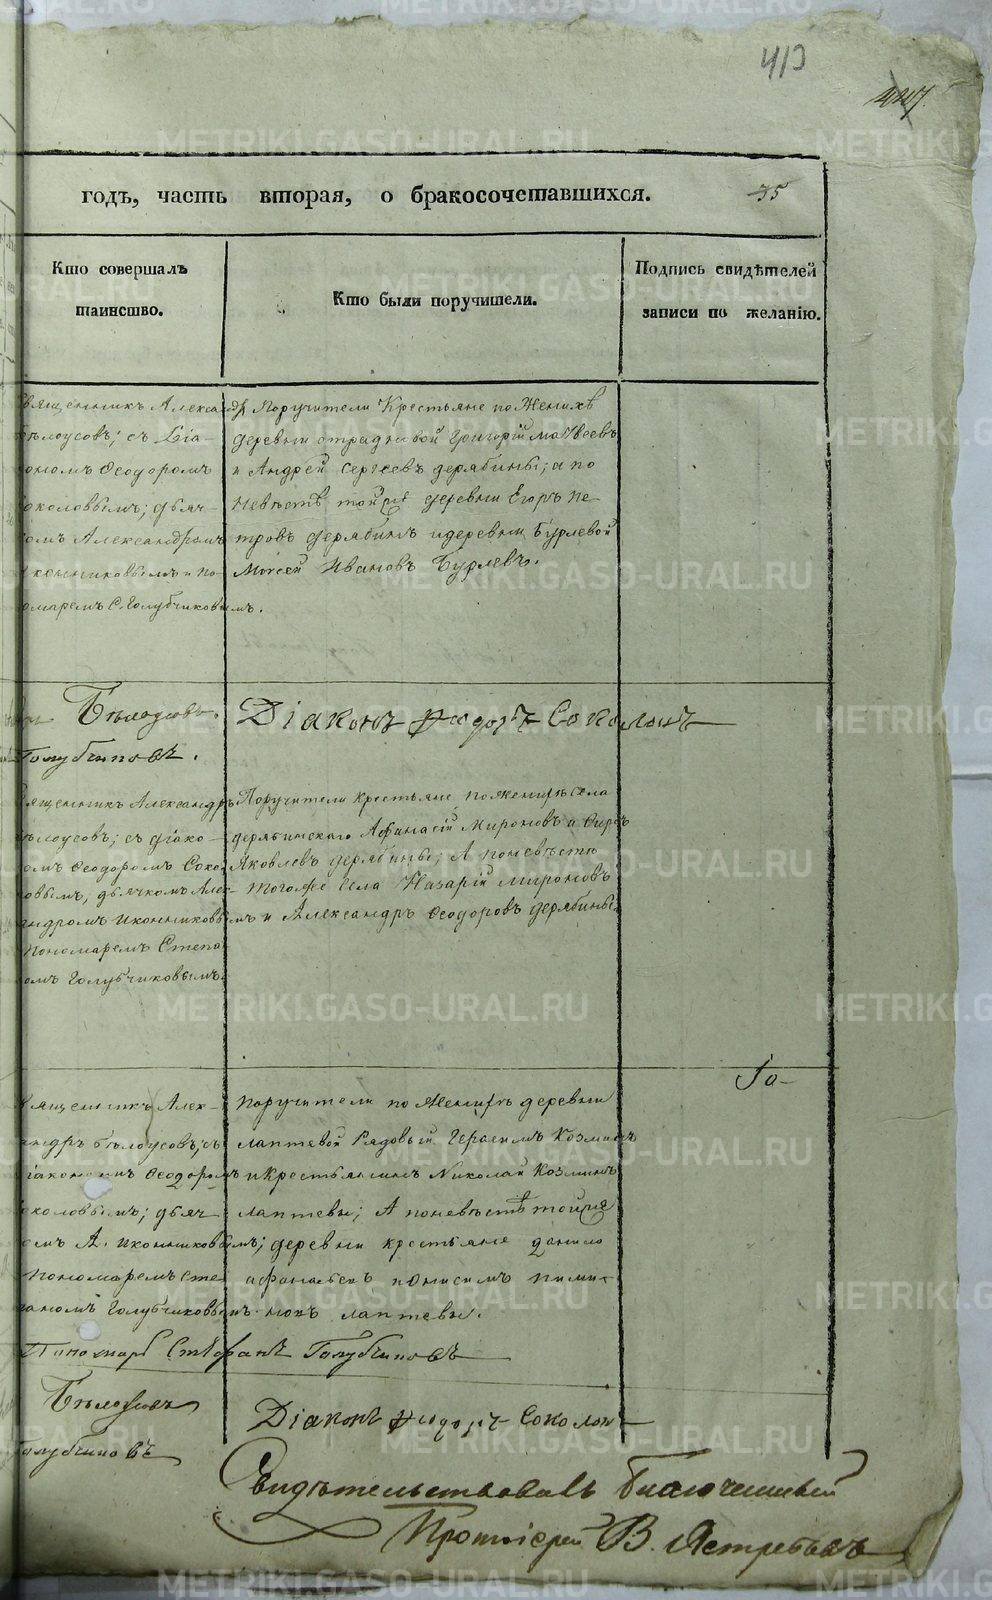 413
годъ, часть вторая, о бракосочетавшихся.
35
Кто совершалъ
таинство.
Кто были поручители.
Подпись свидѣтелей
записи по желанію.
Священникъ Александръ
Бѣлоусовъ; съ Діа-
кономъ Ѳеодоромъ
Соколовымъ; дьяч-
комъ Александромъ
Иконниковымъ и по-
номаремъ С. Голубчиковымъ.
Поручители Крестьяне по Женихѣ
деревни отрадновой Григорій Матвеевъ
и Андрей Сергеевъ дерябины; а по
Невѣстѣ той же деревни Егоръ Пе-
тровъ дерябинъ и деревни Бурлевой
Моисей Ивановъ Бурлевъ.
Бѣлоусовъ.
Діаконъ Ѳеодоръ Соколовъ
Голубчиковъ.
Священникъ Александръ
Бѣлоусовъ; съ діако-
номъ Ѳеодоромъ Соко-
ловымъ, дьячкомъ Алек-
сандромъ Иконниковымъ и
Пономаремъ Степа-
номъ Голубчиковымъ.
Поручители крестьяне по женихѣ села
дерябинскаго Афанасій Мироновъ и
Яковлевъ дерябины; А по невѣстѣ
того же села Назарій Мироновъ
и Александръ Ѳеодоровъ дерябины.
Го-
Священникъ Алек-
сандръ Бѣлоусовъ; съ
Діакономъ Ѳеодоромъ
Соколовымъ; дьяч-
комъ А. Иконниковымъ;
Пономаремъ Сте-
паномъ Голубчиковымъ.
Поручители по Женихѣ деревни
лаптевой Рядовый Герасимъ Козминъ
и Крестьянинъ Николай Козминъ
лаптевы; А по невѣстѣ той же
деревни крестьяне данило
афанасьевъ и Онисимъ пими-
новъ лаптевы.
Пономарь Стефанъ Голубчиковъ
Бѣлоусовъ
Діаконъ Ѳеодоръ Соколовъ
Голубчиковъ
Свидѣтельствовалъ Благочинный
Протоіерей В. Ястребовъ
METRIKI.GASO-URAL.RU